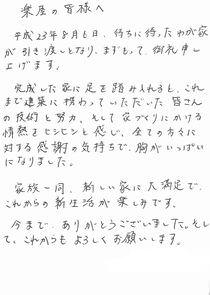 楽屋の皆様へ
平成23年8月6日、待ちに待ったわが家
が引き渡しとなり、まずもって、御礼申
し上げます。
完成した家に足を踏み入れると、これ
まで建築に携わっていただいた皆さん
の技術と努力、そして家づくりにかける
情熱をヒシヒシと感じ、全ての方々に
対する感謝の気持ちで、胸がいっぱい
になりました。
家族一同、新しい家に大満足で、
これからの新生活が楽しみです。
今まで、ありがとうございました。そし
て、これからもよろしくお願いします。